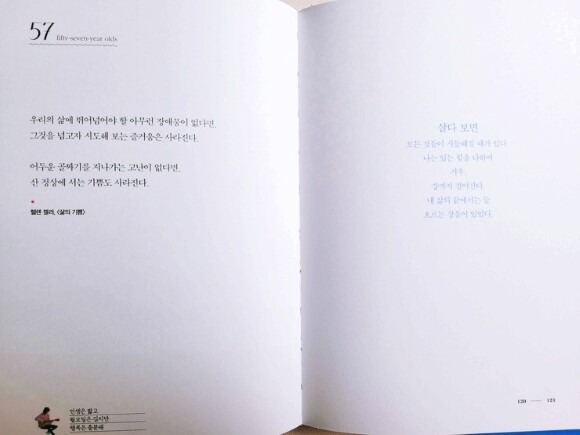 57 fifty-seven-year olds
우리의 삶에 뛰어넘어야 할 아무런 장애물이 없다면,
그것을 넘고자 시도해 보는 즐거움은 사라진다.
어두운 골짜기를 지나가는 고난이 없다면,
산 정상에 서는 기쁨도 사라진다.
헬렌 켈러, 《삶의 기쁨》
인생은 짧고
월요일은 길지만
행복은 충분해
살다 보면
모든 것들이 시들해질 때가 있다
나는 있는 힘을 다하여
겨우,
끝까지 걸어간다.
내 삶의 끝에서는 늘
오르는 길들이 있었다.
120 — 121